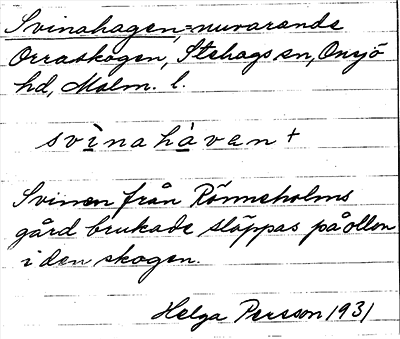 Svinahagen,=nuvarande
Orraskogen, Stehags sn, Onsjö
hd, Malm. l.
svìnahàvan +
Svinen från Rönneholms
gård brukade släppas på ollon
i den skogen.
Helga Persson 1931